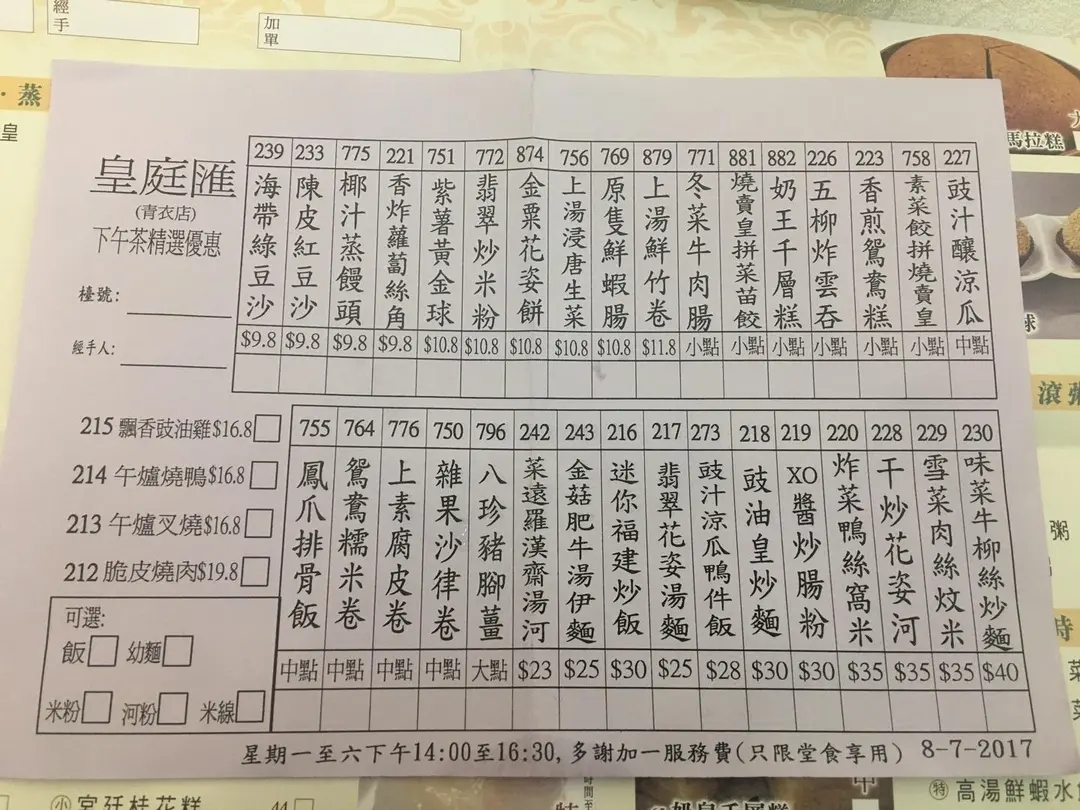 經手
加單
· 蒸
皇
馬拉糕
皇庭滙
(青衣店)
下午茶精選優惠
檯號:
經手人:
239 233 775 221 751 772 874 756 769 879 771 881 882 226 223 758 227
海帶綠豆沙
陳皮紅豆沙
椰汁蒸饅頭
香炸蘿蔔絲角
紫薯黃金球
翡翠炒米粉
金粟花姿餅
上湯浸唐生菜
原隻鮮蝦腸
上湯鮮竹卷
冬菜牛肉腸
燒賣皇拼菜苗餃
奶王千層糕
五柳炸雲吞
香煎鴛鴦糕
素菜餃拼燒賣皇
豉汁釀涼瓜
$9.8 $9.8 $9.8 $9.8 $10.8 $10.8 $10.8 $10.8 $10.8 $11.8 小點 小點 小點 小點 小點 小點 中點
215 飄香豉油雞$16.8
214 午爐燒鴨$16.8
213 午爐叉燒$16.8
212 脆皮燒肉$19.8
可選:
飯 幼麵
米粉 河粉 米線
755 764 776 750 796 242 243 216 217 273 218 219 220 228 229 230
鳳爪排骨飯
鴛鴦糯米卷
上素腐皮卷
雜果沙律卷
八珍豬腳薑
菜遠羅漢齋湯河
金菇肥牛湯伊麵
迷你福建炒飯
翡翠花姿湯麵
豉汁涼瓜鴨件飯
豉油皇炒麵
XO醬炒腸粉
炸菜鴨絲窩米
干炒花姿河
雪菜肉絲炆米
味菜牛柳絲炒麵
中點 中點 中點 中點 大點 $23 $25 $30 $25 $28 $30 $30 $35 $35 $35 $40
星期一至六下午14:00至16:30, 多謝加一服務費(只限堂食享用) 8-7-2017
球
滾粥
粥
時
菜
小 宮廷桂花糕 44
時間至
特
特 高湯鮮蝦水